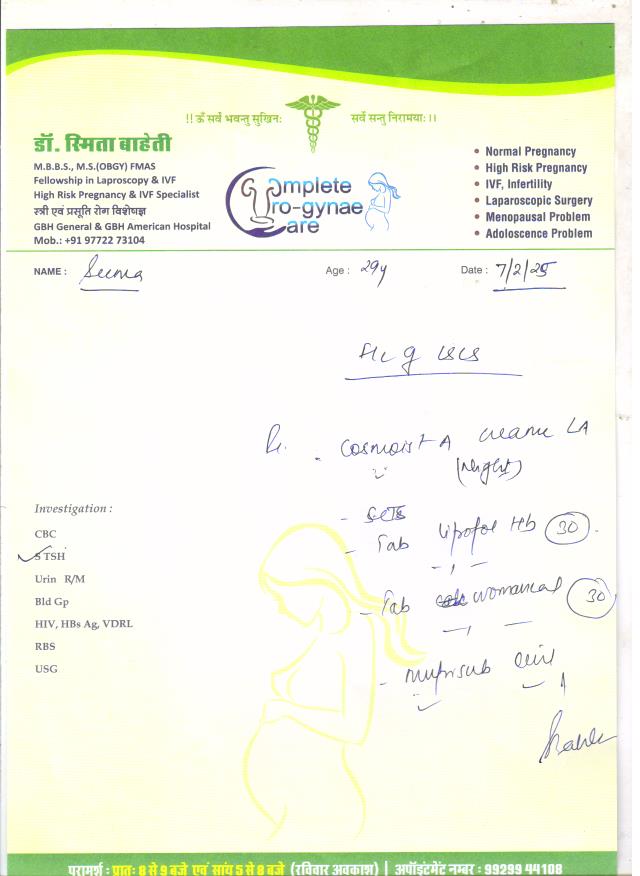 !! ॐ सर्वे भवन्तु सुखिनः सर्वे सन्तु निरामयाः।।
डॉ. स्मिता बाहेती
M.B.B.S., M.S.(OBGY) FMAS
Fellowship in Laproscopy & IVF
High Risk Pregnancy & IVF Specialist
स्त्री एवं प्रसूति रोग विशेषज्ञ
GBH General & GBH American Hospital
Mob.: +91 97722 73104
Complete
Uro-gynae
Care
• Normal Pregnancy
• High Risk Pregnancy
• IVF, Infertility
• Laparoscopic Surgery
• Menopausal Problem
• Adoloscence Problem
NAME : Seema Age : 29y Date : 7/2/25
Cosmoist A LA
(Night)
- Tab Hb 30
- Tab 30
Investigation :
CBC
S TSH
Urin R/M
Bld Gp
HIV, HBs Ag, VDRL
RBS
USG
परामर्श : प्रातः 8 से 9 बजे एवं सांय 5 से 8 बजे (रविवार अवकाश) | अपॉइंटमेंट नम्बर : 99299 44108